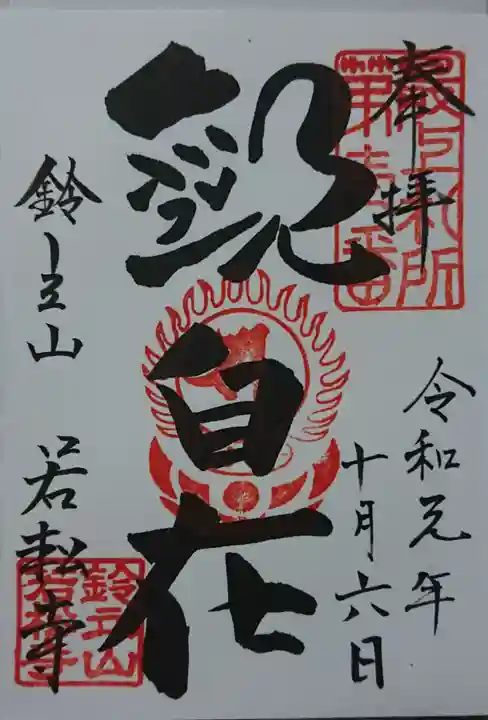 奉拝
最上札所
第壱番
令和元年
十月六日
観自在
鈴立山 若松寺
鈴立山
若松寺